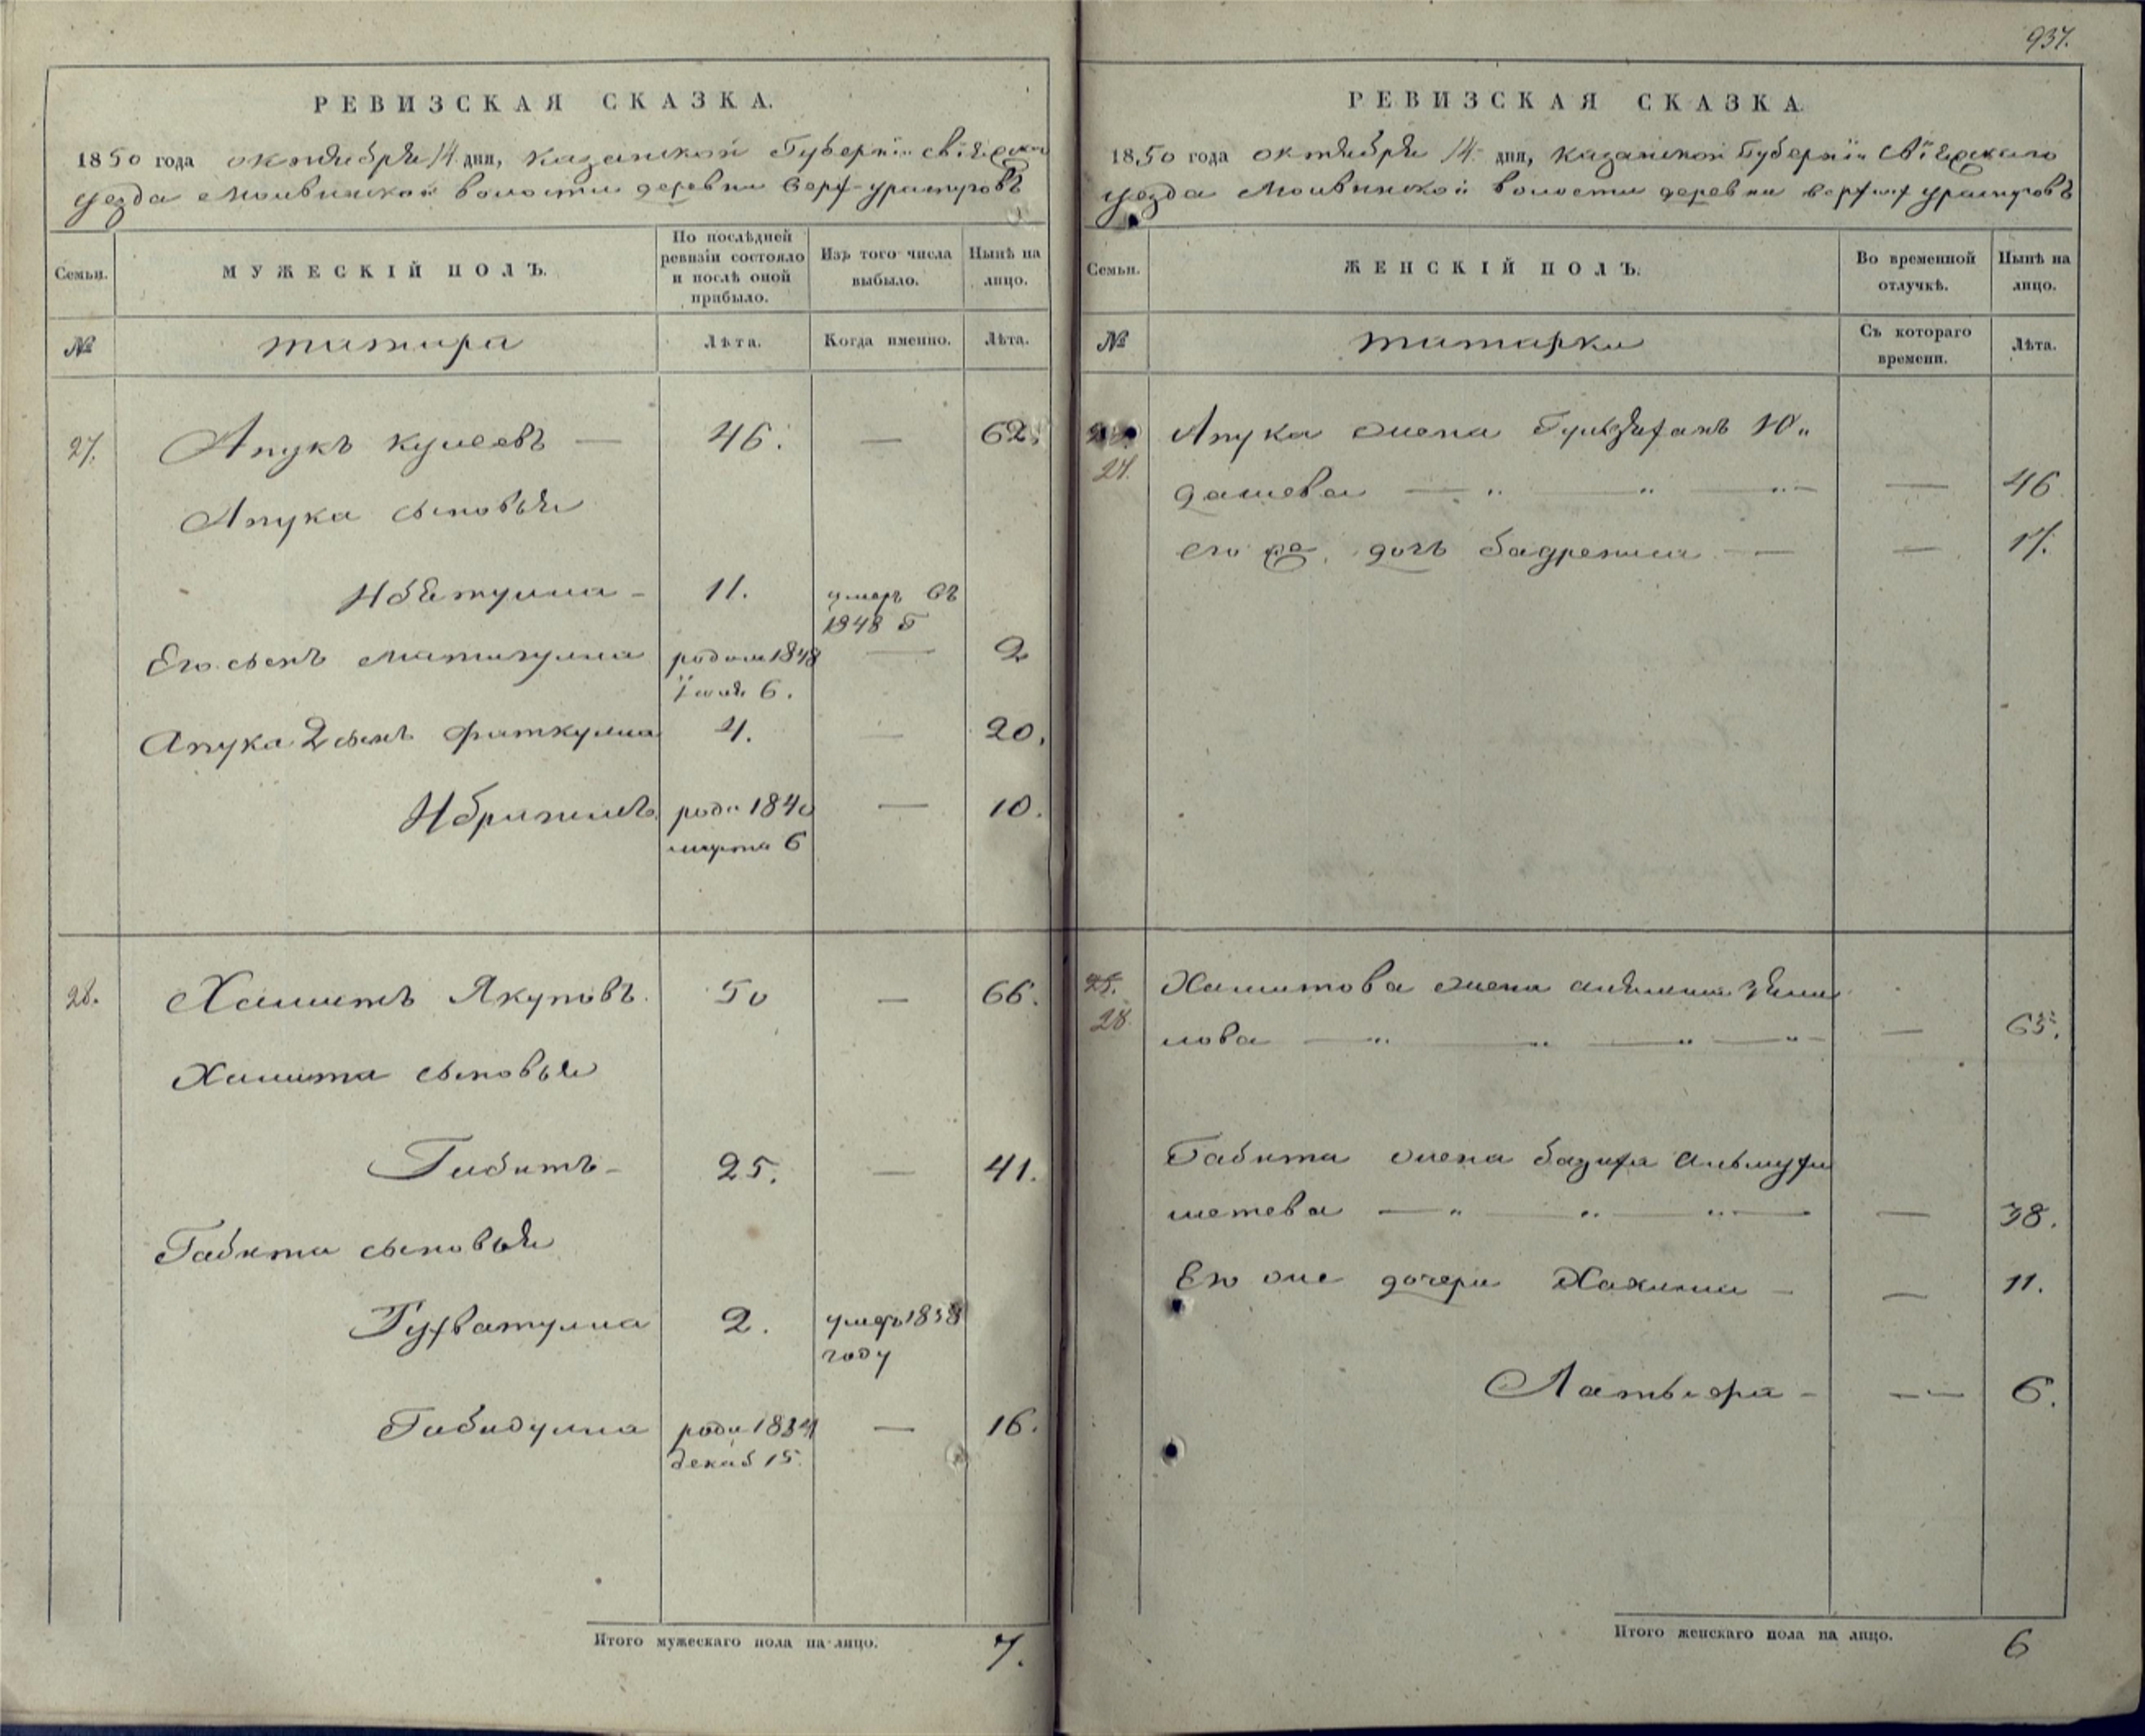 РЕВИЗСКАЯ СКАЗКА.
1850 года октября 14 дня, Казанской Губернiи Свiяжской
уезда Молвинской волости деревни Верх-Ураспуговъ
Семьи.
МУЖЕСКIЙ ПОЛЪ.
По послѣдней ревизiи состояло и послѣ оной прибыло.
Изъ того числа выбыло.
Нынѣ на лицо.
№
татара
Лѣта.
Когда именно.
Лѣта.
27. Апукъ Кулеевъ — 46. — 62.
Апука сыновья
Ибетулла - 11. умеръ въ
1848 г
Его сынъ Матигулла родил 1848 — 2
Iюля 6.
Апука 2 сынъ Фаткулла 4. — 20.
Ибрагимъ роди 1840 — 10.
марта 6
28. Хамитъ Якуповъ. 50 — 66.
Хамита сыновья
Габитъ - 25. — 41.
Габита сыновья
Гуфватулла 2. умеръ 1838
году
Габидулла роди 1834 — 16.
декаб 15.
Итого мужескаго пола на лицо. 7.
937.
РЕВИЗСКАЯ СКАЗКА.
1850 года октября 14 дня, Казанской Губернiи Свiяжскаго
уезда Молвинской волости деревни Верхних Ураспуговъ
Семьи.
ЖЕНСКIЙ ПОЛЪ.
Во временной отлучкѣ.
Нынѣ на лицо.
№
татарки
Съ котораго времени.
Лѣта.
27. Апука жена Ю„
дашева — — 46
его же дочь Бадрениса — — 17.
25.
28. Хамитова жена
лова — — 65.
Габита жена Базифа Альмуха
метева — — 38.
Его же дочери Хакима - — 11.
Латыфа - — 6.
Итого женскаго пола на лицо. 6